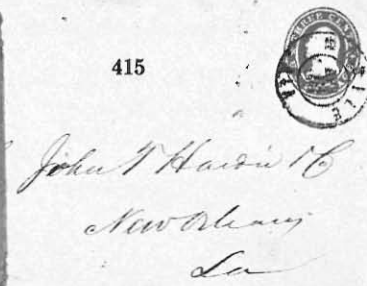 THREE CENTS
415
John T Hardie & Co
New Orleans
La